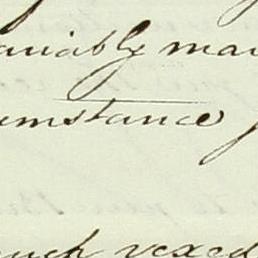 ariably ma
umstance
uch vexed